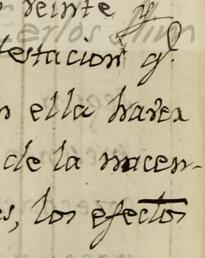 veinte y
testacion q.l
n ella haver
de la nacen-
es, los efectos